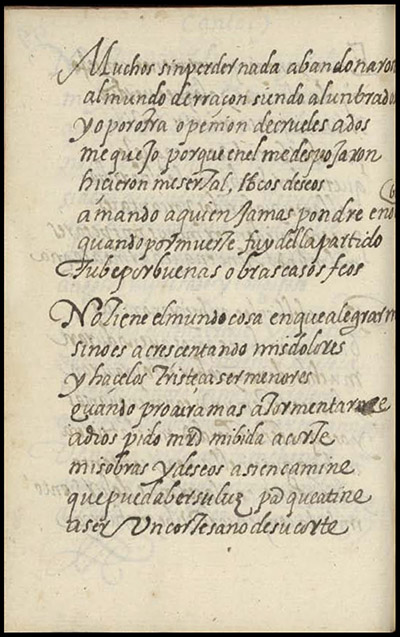 Muchos sin perder nada abandonaron
al mundo de rraçon siendo alunbrado
y o por otra openion de crueles ados
me quejo porque en el me despojaron
hicieron me sertal, locos deseos
amando a quien jamas pondre en o
quando por muerte fuy della partido
Tube por buenas obras casos feos
No tiene el mundo cosa en que alegrarm
sino es acrescentando mis dolores
y hacelos tristeça ser menores
quando procura mas atormentarme
a dios pido mrd mi bida acorte
mis obras y deseos asi encamine
que pueda ber su luz pa que atine
a ser un cortesano de su corte